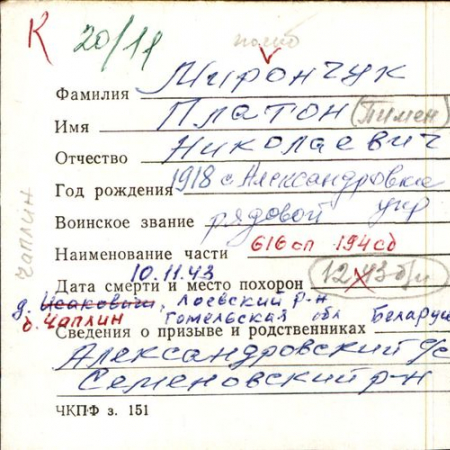 К 20/11 погиб
Фамилия Мирончук
Имя Платон (Пимен)
Отчество Николаевич
Год рождения 1918 с. Александровка
Воинское звание рядовой укр
Наименование части 616 сп 194 сд
10.11.43
Дата смерти и место похорон 12.43 б/и
д. Исакович, Лоевский р-н
д. Чаплин Гомельская обл Беларус
Сведения о призыве и родственниках
Александровский с/с
Семеновский р-н
ЧКПФ з. 151
Чаплин